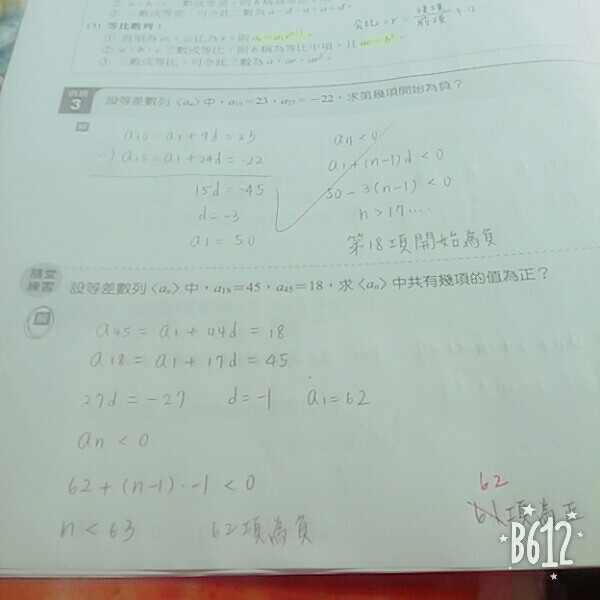 (3) 等比數列：
① 首項為a₁，公比為r，則 aₙ=a₁rⁿ⁻¹。
② a、b、c三數成等比，則b稱為等比中項，且 ac=b²。
③ 三數成等比，可令此三數為a、ar、ar²。
公比=r= 後項/前項 ≠0
3
設等差數列〈aₙ〉中，a₁₀=23，a₂₅=-22，求第幾項開始為負？
解
a₁₀=a₁+9d=23
-) a₂₅=a₁+24d=-22
15d=-45
d=-3
a₁=50
aₙ<0
a₁+(n-1)d<0
50-3(n-1)<0
n>17....
第18項開始為負
隨堂練習
設等差數列〈aₙ〉中，a₁₈=45，a₄₅=18，求〈aₙ〉中共有幾項的值為正？
解
a₄₅=a₁+44d=18
a₁₈=a₁+17d=45
27d=-27 d=-1 a₁=62
aₙ<0
62+(n-1)·-1<0
n<63 62項為負
62
61項為正
B612